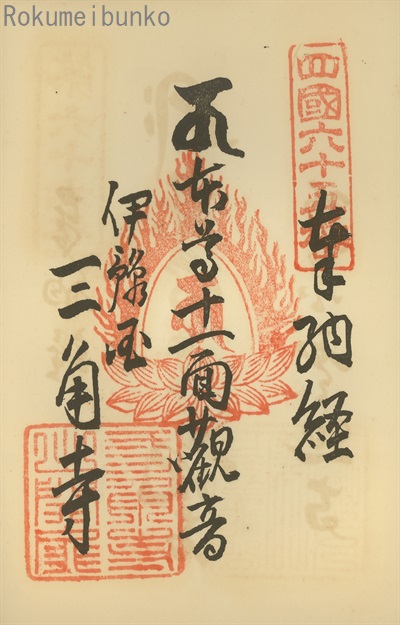 Rokumeibunko
四國六十五
奉納経
本尊十一面觀音
伊豫国
三角寺